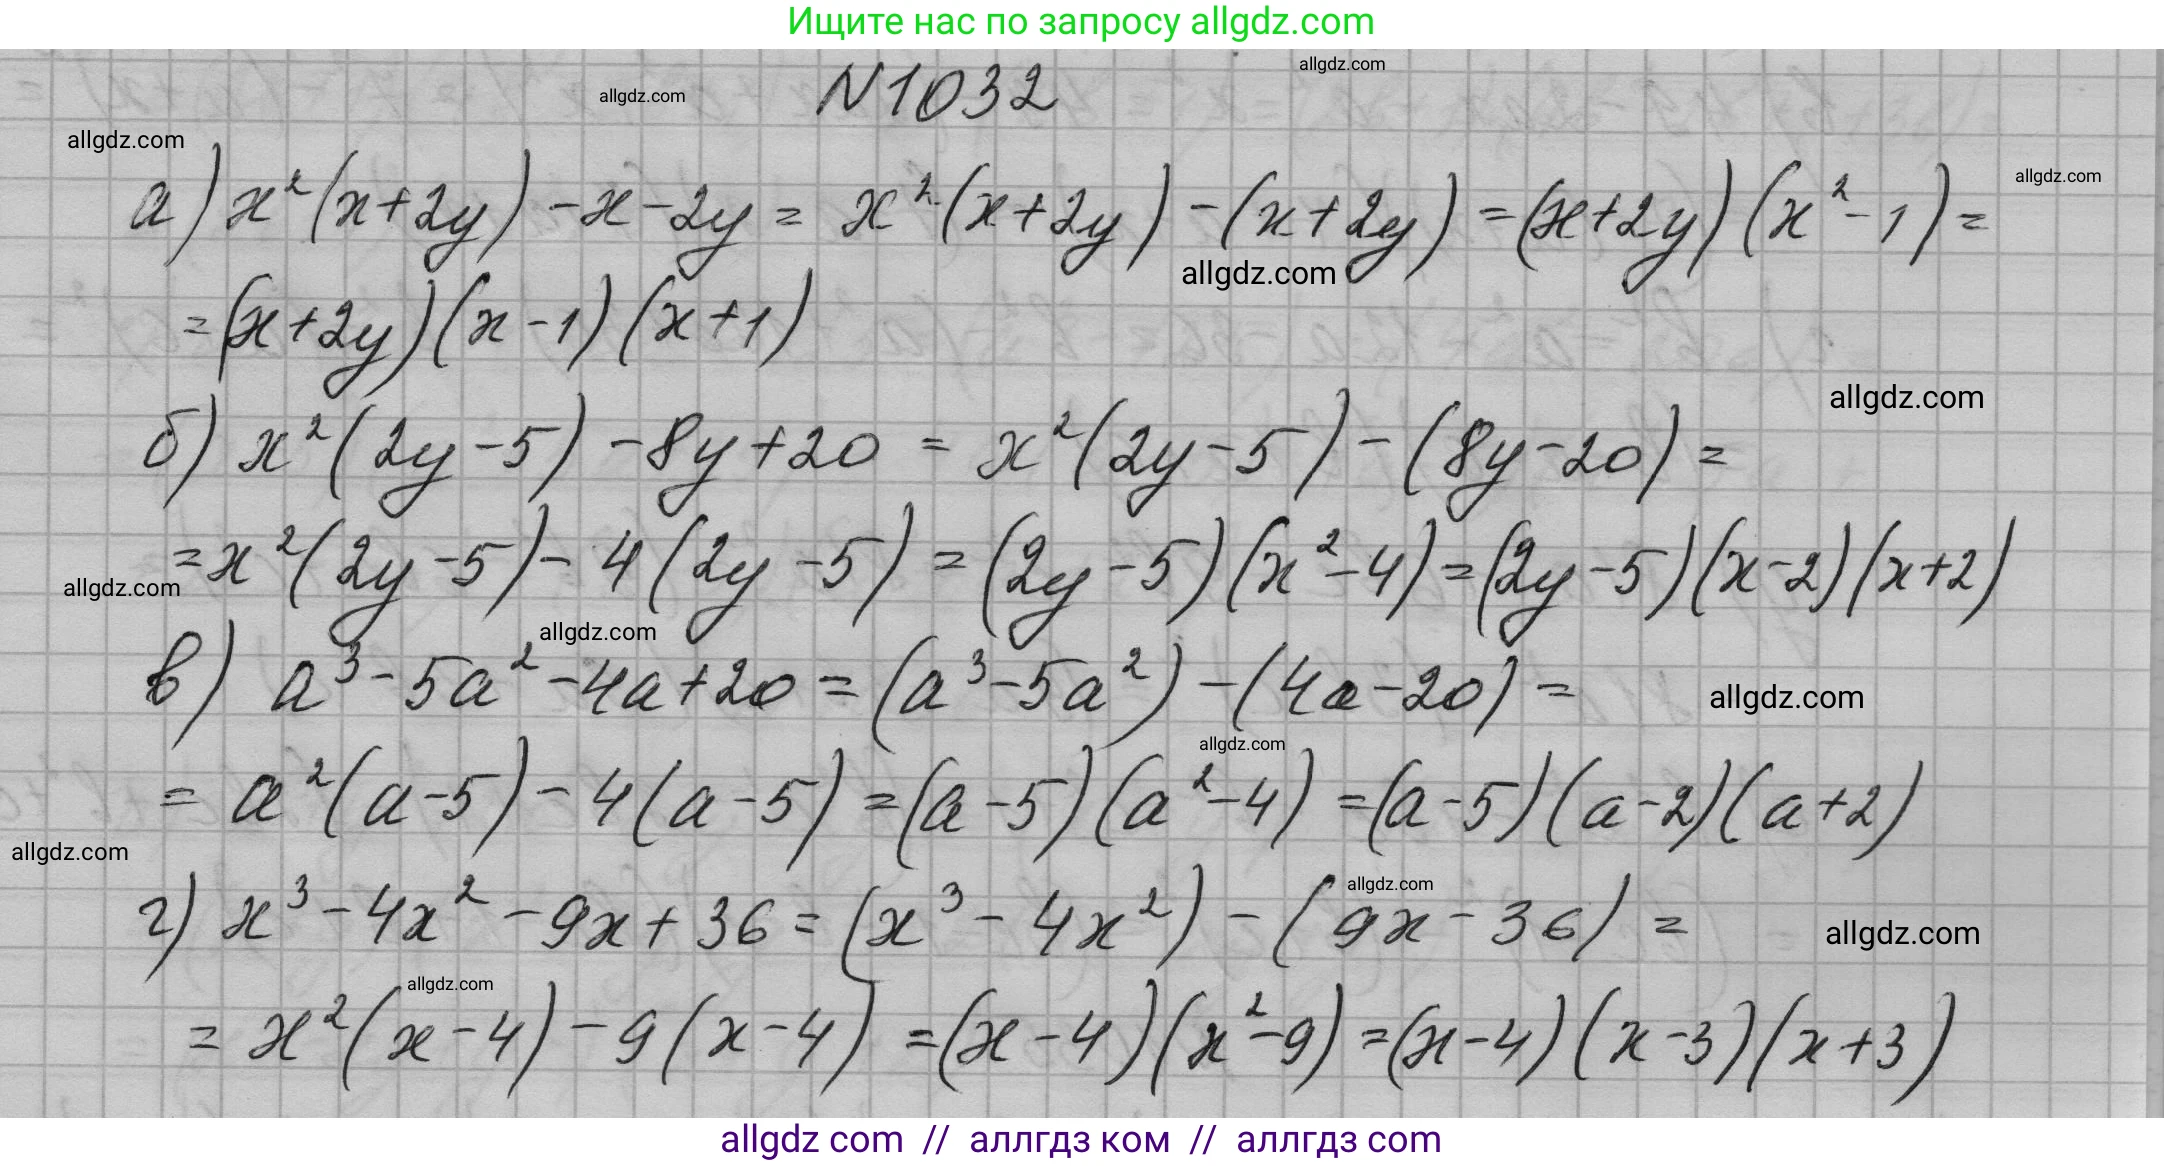 Ищите нас по запросу allgdz.com
N1032
allgdz.com
allgdz.com
allgdz.com
а) x²(x+2y)-x-2y = x²(x+2y)-(x+2y)=(x+2y)(x²-1)=
allgdz.com
allgdz.com
=(x+2y)(x-1)(x+1)
allgdz.com
б) x²(2y-5)-8y+20 = x²(2y-5)-(8y-20)=
=x²(2y-5)-4(2y-5)=(2y-5)(x²-4)=(2y-5)(x-2)(x+2)
allgdz.com
allgdz.com
в) a³-5a²-4a+20=(a³-5a²)-(4a-20)=
allgdz.com
allgdz.com
= a²(a-5)-4(a-5)=(a-5)(a²-4)=(a-5)(a-2)(a+2)
allgdz.com
allgdz.com
г) x³-4x²-9x+36=(x³-4x²)-(9x-36)=
allgdz.com
allgdz.com
= x²(x-4)-9(x-4)=(x-4)(x²-9)=(x-4)(x-3)(x+3)
allgdz com // аллгдз ком // аллгдз com